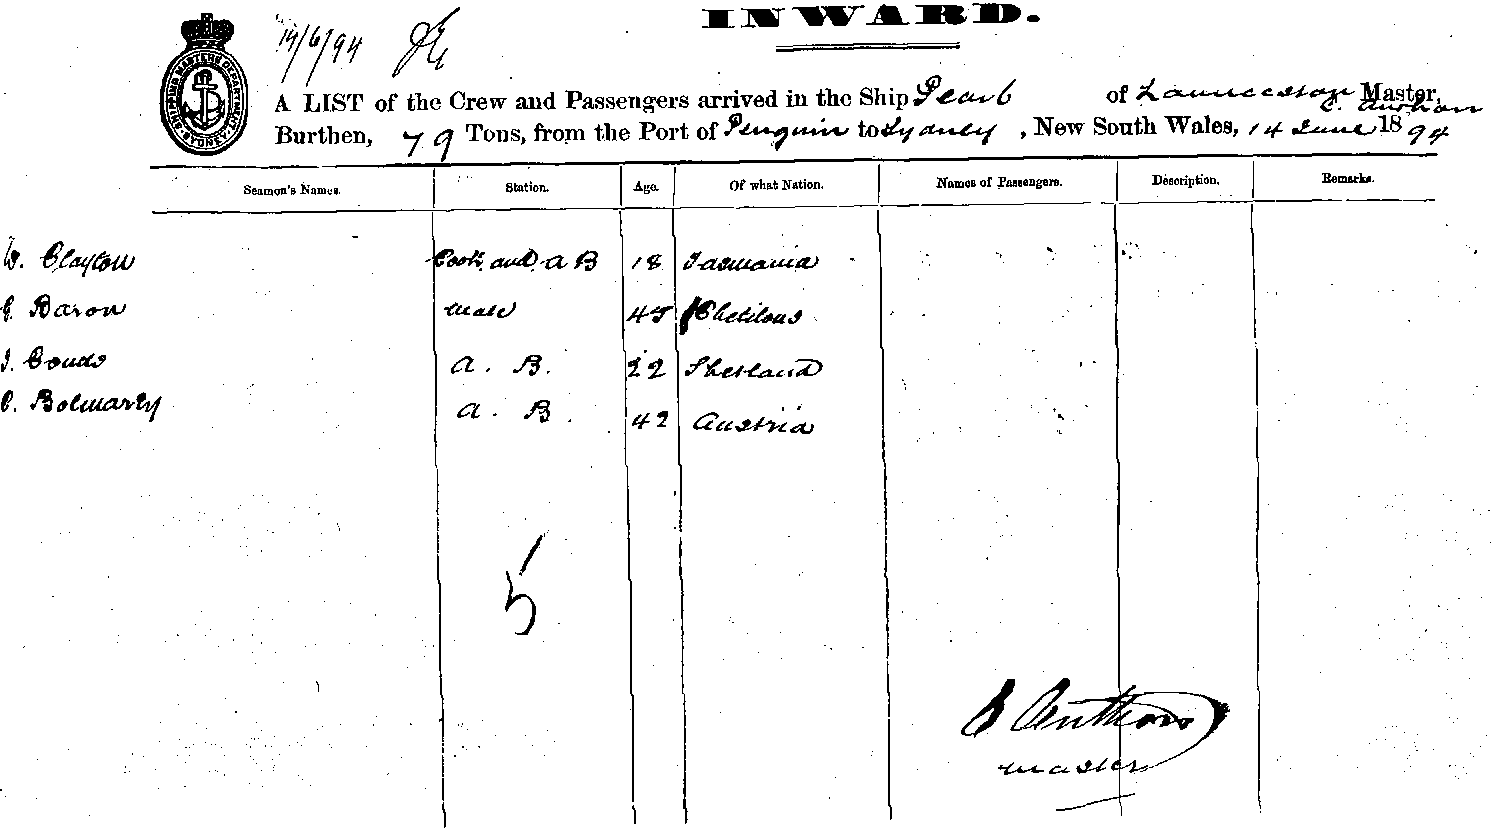 INWARD.
19/6/94
SHIPPING MASTERS DEPARTMENT SYDNEY
A LIST of the Crew and Passengers arrived in the Ship Pearl of Launceston Master,
Burthen, 79 Tons, from the Port of Penguin to Sydney, New South Wales, 14 June 1894
Seamen's Names. Station. Age. Of what Nation. Names of Passengers. Description. Remarks.
W. Clayton Cook and A B 18 Tasmania
Baron Mate 45
A. B. 22 Shetland
A. B. 42 Austria
5
Master